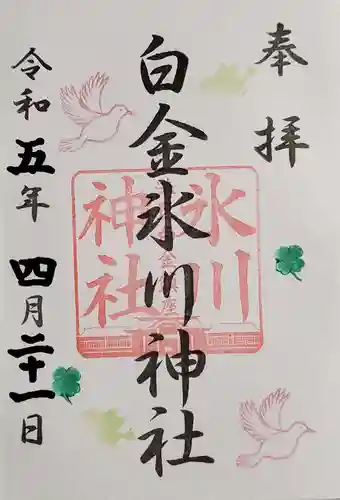 奉拝
白金氷川神社
氷川
神社
令和五年 四月二十一日